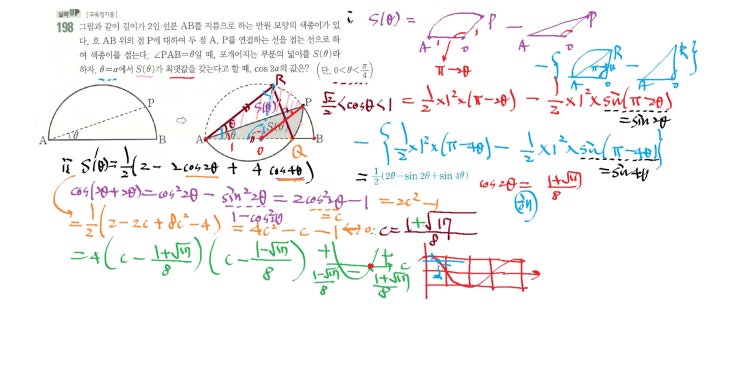 실력 UP | 교육청기출 |
198 그림과 같이 길이가 2인 선분 AB를 지름으로 하는 반원 모양의 색종이가 있
다. 호 AB 위의 점 P에 대하여 두 점 A, P를 연결하는 선을 접는 선으로 하
여 색종이를 접는다. ∠PAB=θ일 때, 포개어지는 부분의 넓이를 S(θ)라
하자. θ=α에서 S(θ)가 최댓값을 갖는다고 할 때, cos 2α의 값은? (단, 0<θ<π/4)
A θ B P
⇨
A B O P Q R S(θ) θ 1
i S(θ) = A 1 O 1 P π-2θ − A O P
− { A O R − A O R }
√2/2 < cosθ < 1 = 1/2 x 1² x (π-2θ) − 1/2 x 1² x sin(π-2θ)
= sin 2θ
− { 1/2 x 1² x (π-4θ) − 1/2 x 1² x sin(π-4θ) }
= sin 4θ
= 1/2 (2θ−sin 2θ+sin 4θ)
ii S'(θ) = 1/2 (2 − 2 cos2θ + 4 cos4θ)
cos(2θ+2θ) = cos²2θ − sin²2θ = 2cos²2θ − 1 = 2c² − 1
1−cos²2θ = c
cos2θ = (1+√17)/8
= 1/2 (2 − 2c + 8c² − 4) = 4c² − c − 1 = 0 : c = (1+√17)/8
= 4 (c − (1+√17)/8) (c − (1−√17)/8)
+ − + c
(1−√17)/8 (1+√17)/8